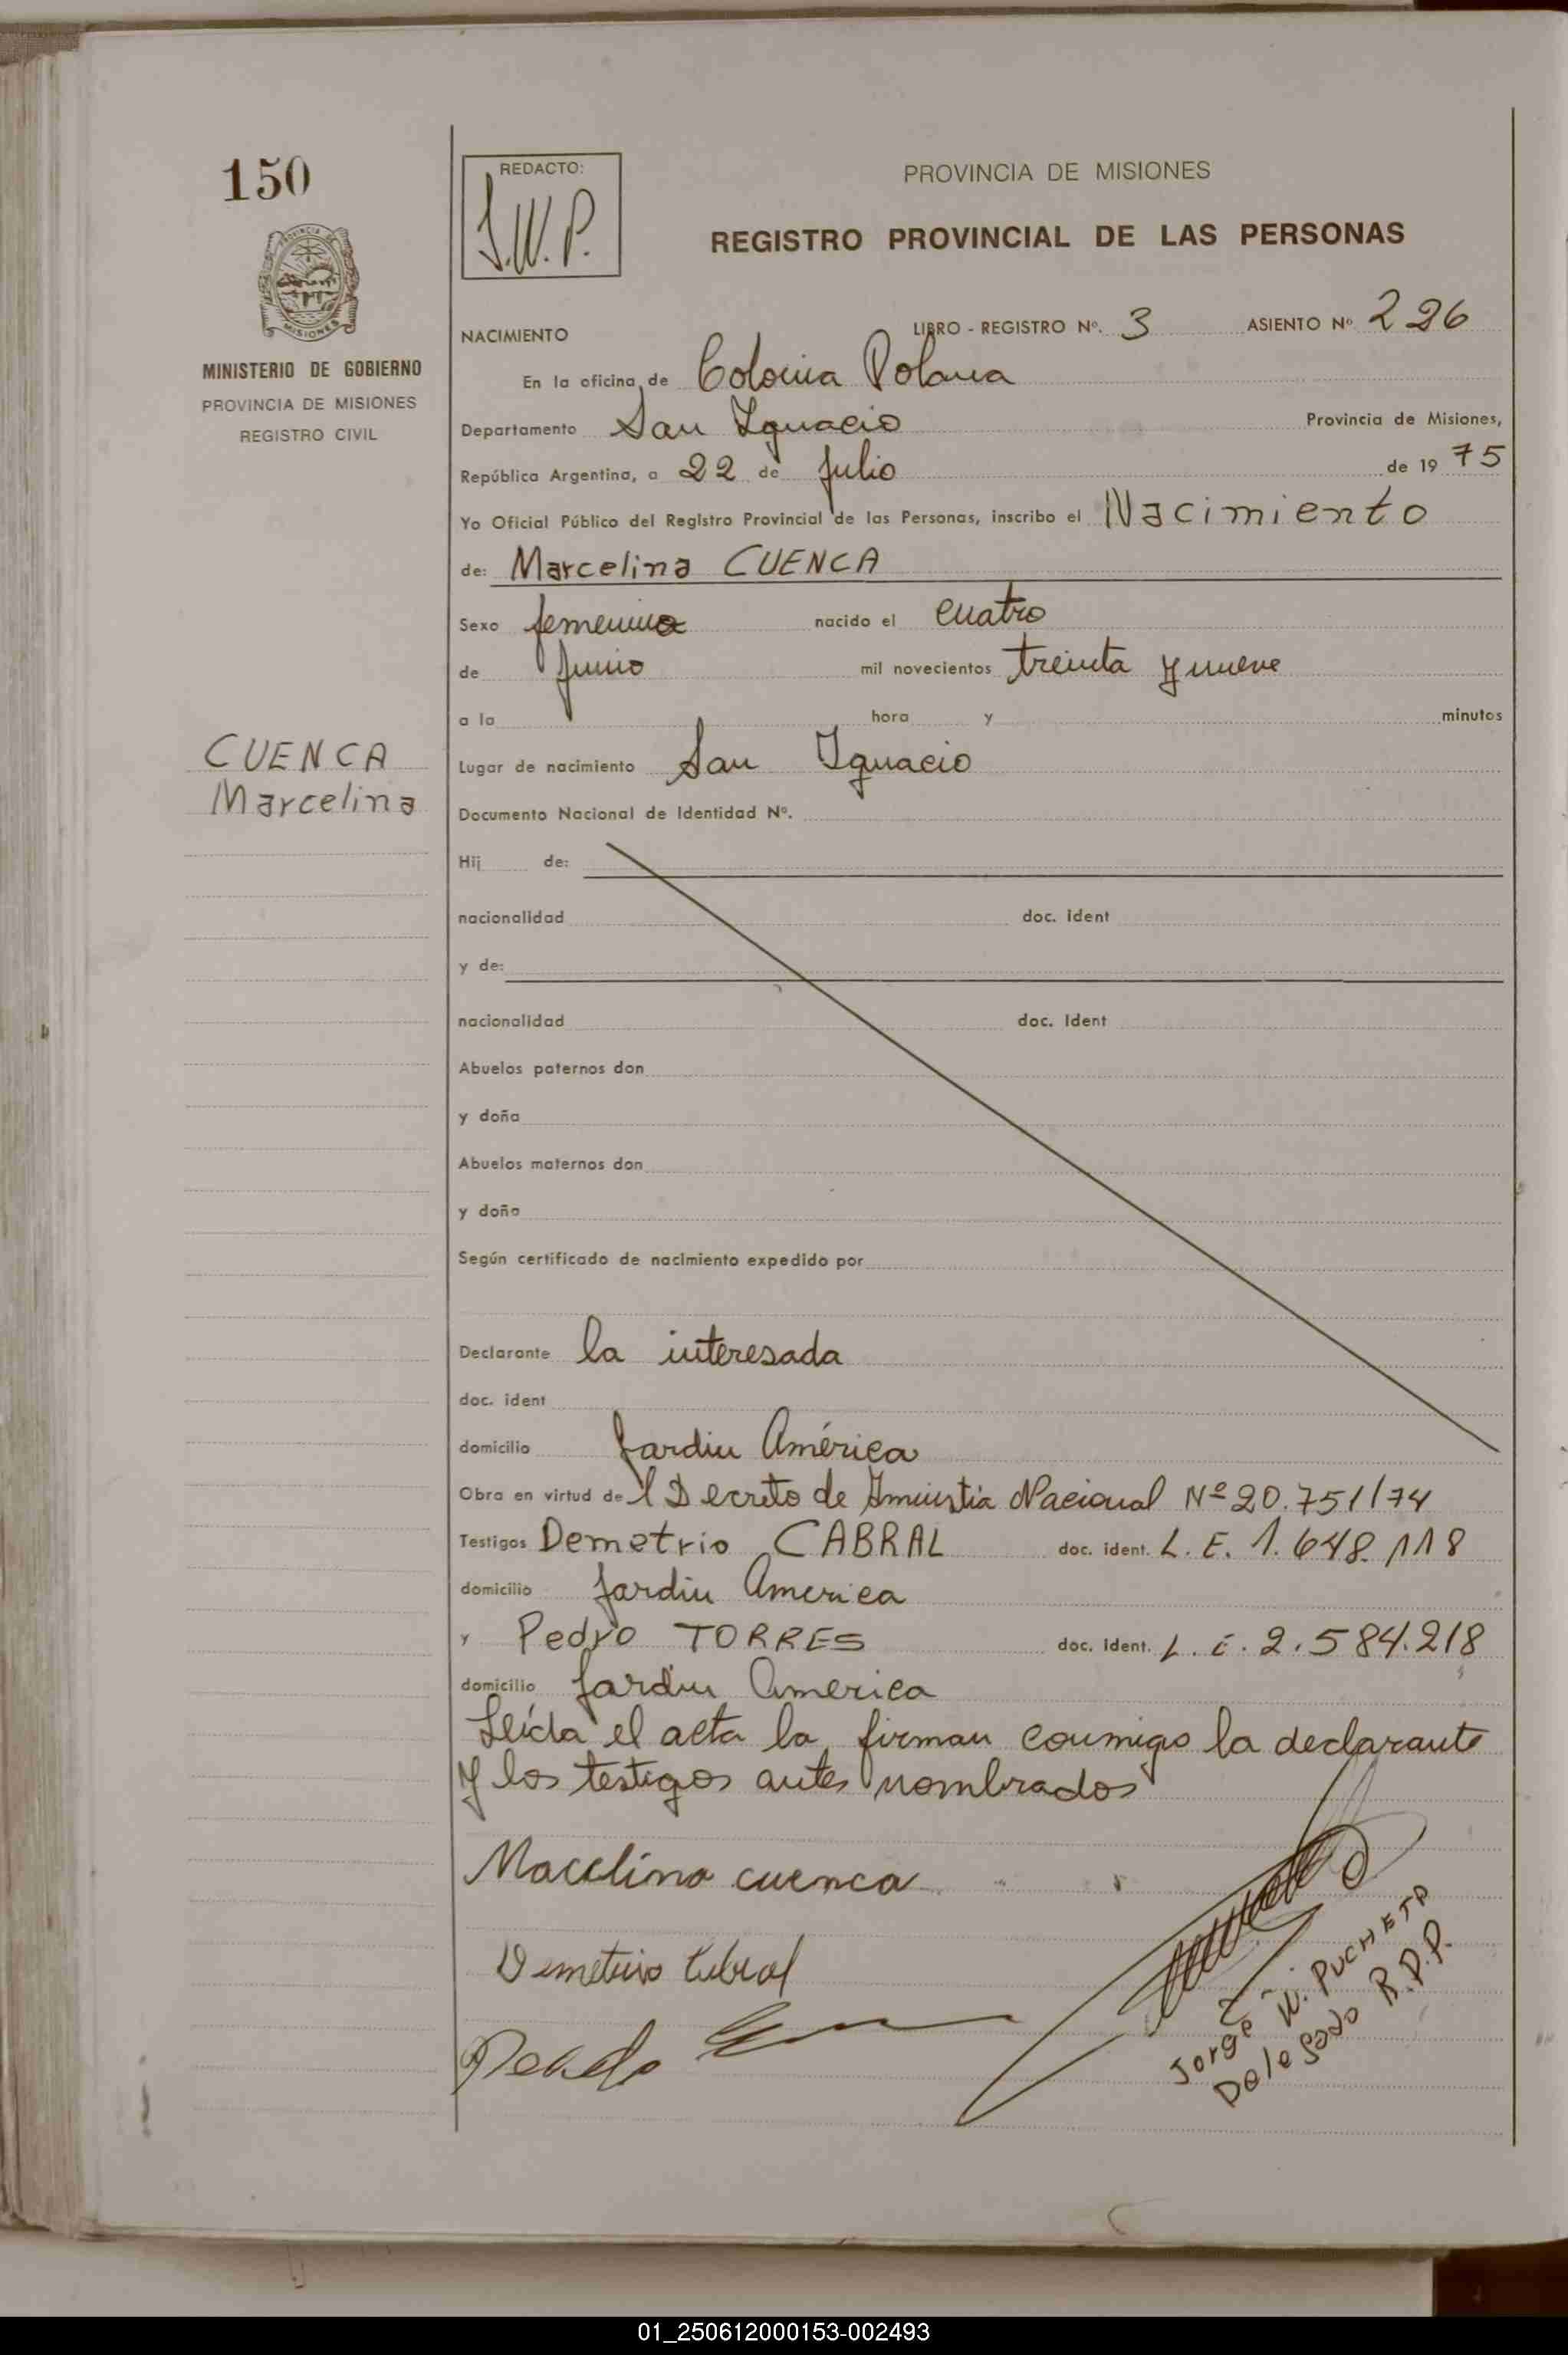 150
REDACTO:
J.W.P.
PROVINCIA DE MISIONES
REGISTRO PROVINCIAL DE LAS PERSONAS
PROVINCIA DE
MISIONES
MINISTERIO DE GOBIERNO
PROVINCIA DE MISIONES
REGISTRO CIVIL
NACIMIENTO LIBRO - REGISTRO Nº. 3 ASIENTO Nº 226
En la oficina de Colonia Polana
Departamento San Ignacio Provincia de Misiones,
República Argentina, a 22 de Julio de 19 75
Yo Oficial Público del Registro Provincial de las Personas, inscribo el Nacimiento
de: Marcelina CUENCA
Sexo femenino nacido el cuatro
de Junio mil novecientos treinta y nueve
a la hora y minutos
CUENCA
Marcelina
Lugar de nacimiento San Ignacio
Documento Nacional de Identidad Nº.
Hij de:
nacionalidad doc. ident
y de:
nacionalidad doc. Ident
Abuelos paternos don
y doña
Abuelos maternos don
y doña
Según certificado de nacimiento expedido por
Declarante la interesada
doc. ident
domicilio Jardin América
Obra en virtud del Decreto de Amnistia Nacional Nº 20.751/74
Testigos Demetrio CABRAL doc. ident. L. E. 1.648.118
domicilio Jardin America
y Pedro TORRES doc. Ident. L. E. 2.584.218
domicilio Jardin America
Leída el acta la firman conmigo la declarante
y los testigos antes nombrados
Macelina cuenca
Demetrio Cabral
Jorge W. PUCHETA
Delegado R.P.P.
01_250612000153-002493